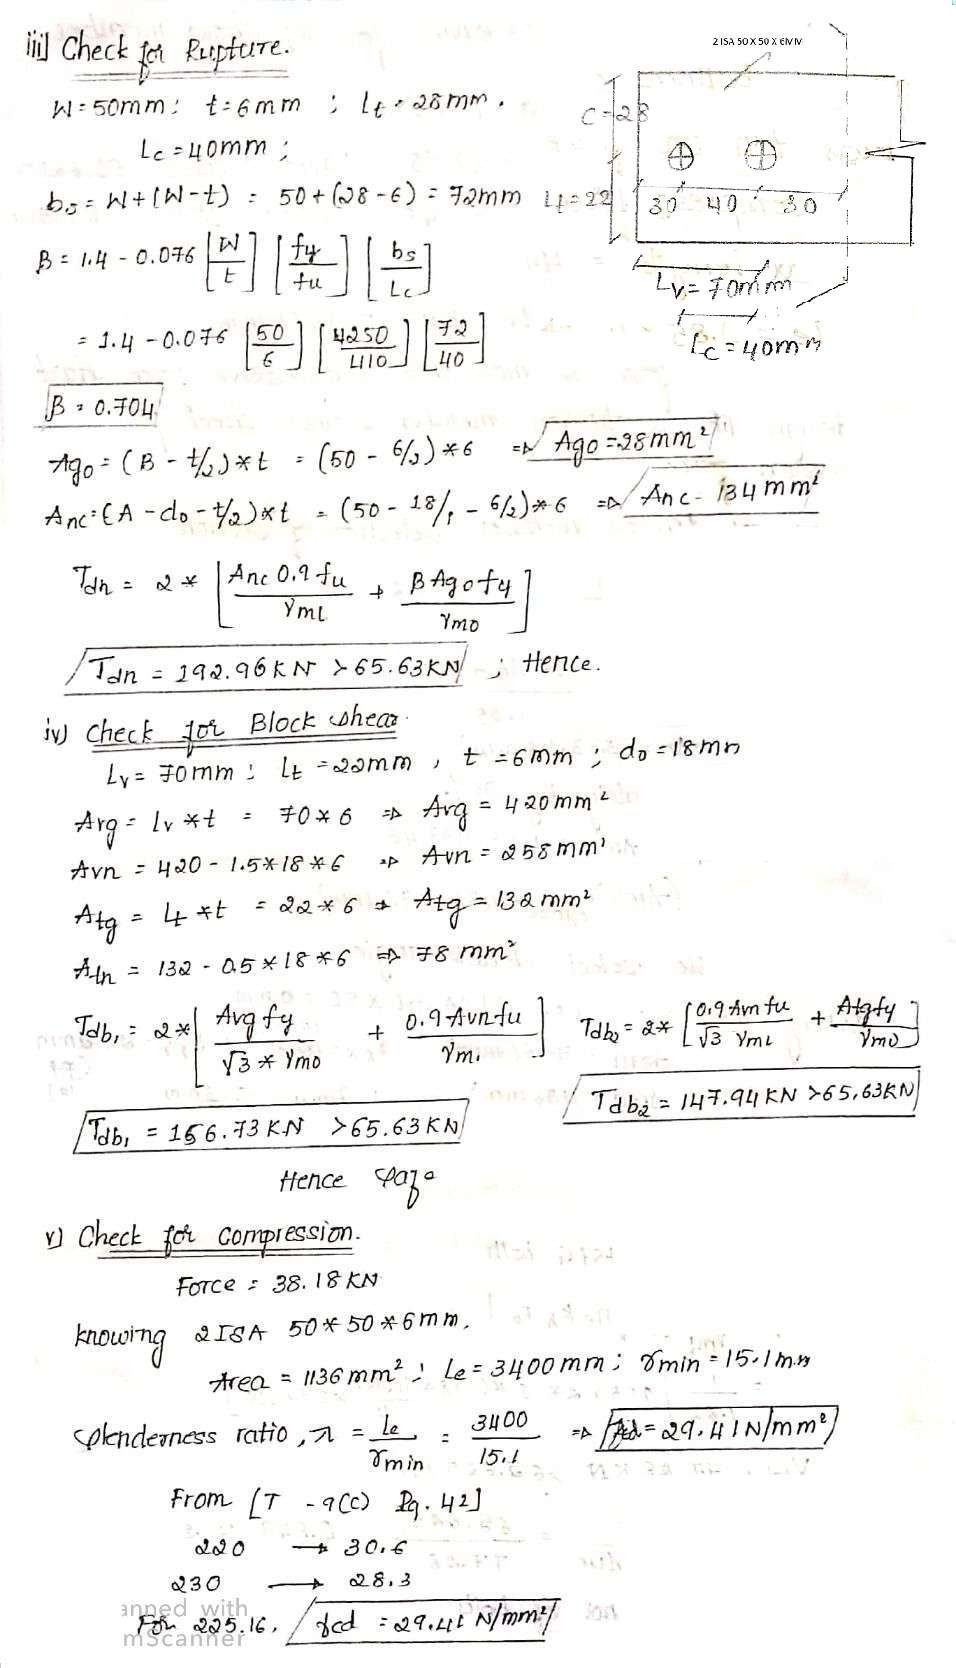 iii] Check for Rupture.
2 ISA 50 X 50 X 6IVIV
W = 50mm; t = 6mm ; Lt = 28mm.
C = 28
Lc = 40mm ;
bs = W + (W - t) = 50 + (28 - 6) = 72mm
Lt = 22
30 40 30
β = 1.4 - 0.076 [W/t] [fy/fu] [bs/Lc]
Lv = 70mm
= 1.4 - 0.076 [50/6] [4250/410] [72/40]
Lc = 40mm
β = 0.704
Ago = (B - t/2) * t = (50 - 6/2) * 6 ⇒ Ago = 28mm²
Anc = (A - do - t/2) * t = (50 - 18/1 - 6/2) * 6 ⇒ Anc - 134mm²
Tdn = 2 * [Anc 0.9 fu/γm1 + β Ago fy/γmo]
Tdn = 192.96KN > 65.63KN ; Hence.
iv) Check for Block shear.
Lv = 70mm ; Lt = 22mm , t = 6mm ; do = 18mm
Avg = lv * t = 70 * 6 ⇒ Avg = 420mm²
Avn = 420 - 1.5 * 18 * 6 ⇒ Avn = 258mm²
Atg = Lt * t = 22 * 6 ⇒ Atg = 132mm²
Atn = 132 - 0.5 * 18 * 6 ⇒ 78mm²
Tdb1 = 2 * [Avg fy/√3 * γmo + 0.9 Avn fu/γm1]
Tdb2 = 2 * [0.9 Avn fu/√3 γm1 + Atg fy/γmo]
Tdb2 = 147.94KN > 65.63KN
Tdb1 = 156.73KN > 65.63KN
Hence safe
v) Check for compression.
Force = 38.18KN
knowing 2ISA 50 * 50 * 6mm.
Area = 1136mm² ; Le = 3400mm ; γmin = 15.1mm
Slenderness ratio, λ = Le/γmin = 3400/15.1 ⇒ fcd = 29.41N/mm²
From [T - 9(c) Pg. 42]
220 → 30.6
230 → 28.3
anned with
For 225.16, fcd = 29.41 N/mm²
mScanner